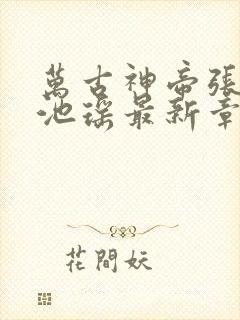 萬古神帝張
池瑤最新章
花間妖